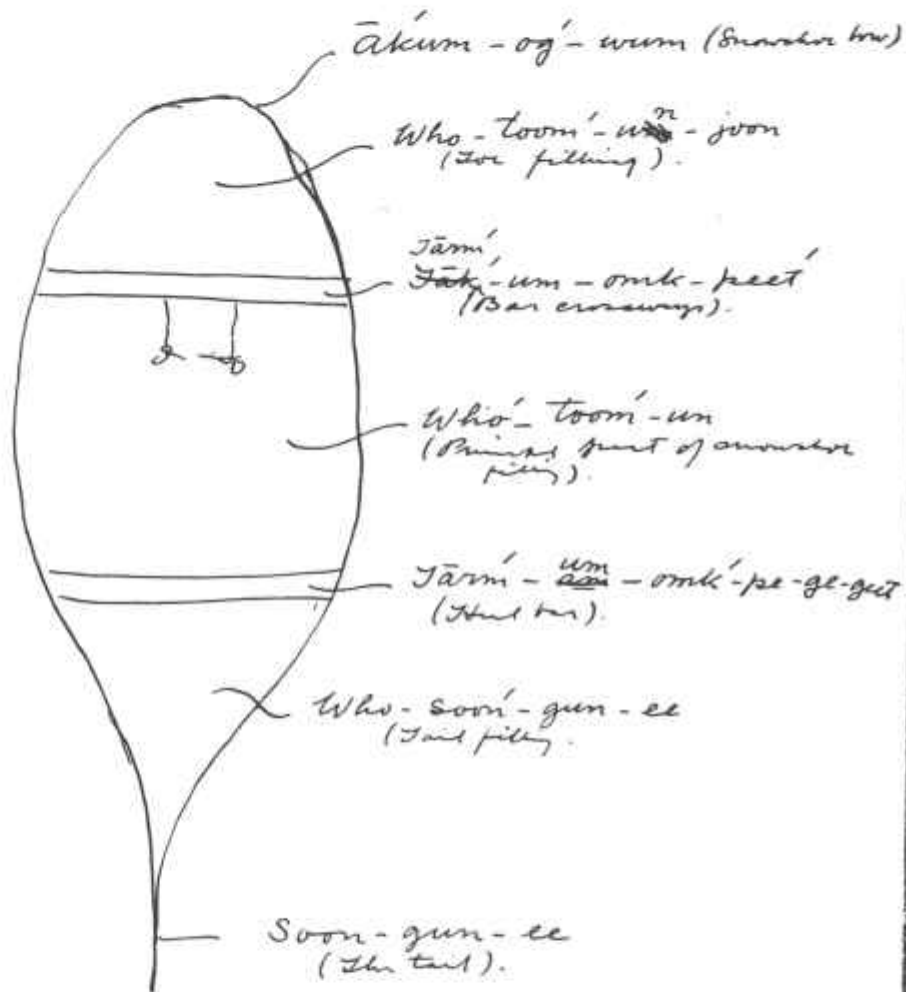 Āḱum - oǵ - wum (Snowshoe bow)
Who - toom´ - un - joon
(Toe filling).
Tārm´
Tāk´ - um - omk - peet´
(Bar crossways).
Who´ - toom´ - un
(Principal part of snowshoe
filling).
um
Tārm´ - am - omk´ - pe - ge - geet
(Heel bar).
Who - soon´ - gun - ee
(Tail filling.
Soon - gun - ee
(The tail).